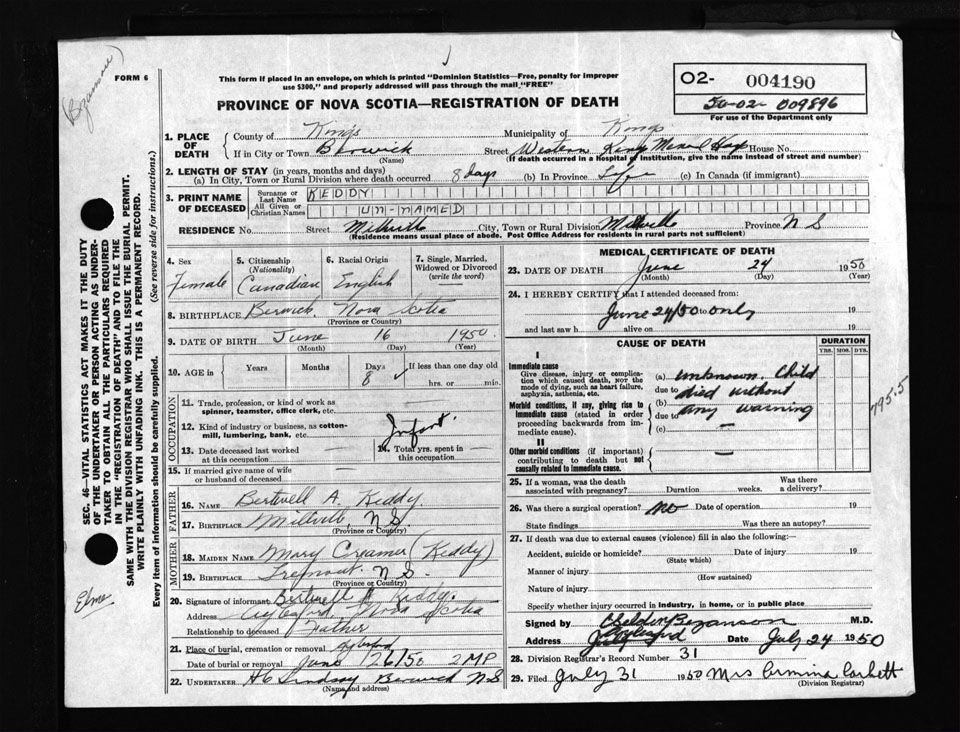 FORM 6
This form if placed in an envelope, on which is printed "Dominion Statistics—Free, penalty for improper
use $300," and properly addressed will pass through the mail "FREE"
PROVINCE OF NOVA SCOTIA—REGISTRATION OF DEATH
O2- 004190
50-02- 009896
For use of the Department only
SEC. 46—VITAL STATISTICS ACT MAKES IT THE DUTY
OF THE UNDERTAKER OR PERSON ACTING AS UNDER-
TAKER TO OBTAIN ALL THE PARTICULARS REQUIRED
IN THE "REGISTRATION OF DEATH" AND TO FILE THE
SAME WITH THE DIVISION REGISTRAR WHO SHALL ISSUE THE BURIAL PERMIT.
WRITE PLAINLY WITH UNFADING INK. THIS IS A PERMANENT RECORD.
Every item of information should be carefully supplied. (See reverse side for instructions.)
1. PLACE OF DEATH
County of Kings Municipality of Kings
If in City or Town Berwick Street Western Kings House No.
(Name) (If death occurred in a hospital or institution, give the name instead of street and number)
2. LENGTH OF STAY (in years, months and days)
(a) In City, Town or Rural Division where death occurred 8 days (b) In Province Life (c) In Canada (if immigrant)
3. PRINT NAME OF DECEASED
Surname or Last Name KEDDY
All Given or Christian Names UN-NAMED
RESIDENCE No. Street Millville City, Town or Rural Division Millville Province N S
(Residence means usual place of abode. Post Office Address for residents in rural parts not sufficient)
4. Sex Female
5. Citizenship (Nationality) Canadian
6. Racial Origin English
7. Single, Married, Widowed or Divorced (write the word)
8. BIRTHPLACE Berwick Nova Scotia
(Province or Country)
9. DATE OF BIRTH June 16 1950
(Month) (Day) (Year)
10. AGE in Years Months Days 8 If less than one day old
hrs. or min.
OCCUPATION
11. Trade, profession, or kind of work as
spinner, teamster, office clerk, etc.
12. Kind of industry or business, as cotton-
mill, lumbering, bank, etc. Infant
13. Date deceased last worked
at this occupation
14. Total yrs. spent in
this occupation
15. If married give name of wife
or husband of deceased
FATHER
16. NAME Bertwell A. Keddy
17. BIRTHPLACE Millville N S
(Province or Country)
MOTHER
18. MAIDEN NAME Mary Creamer (Keddy)
19. BIRTHPLACE Tremont N S.
(Province or Country)
20. Signature of informant Bertwell A Keddy.
Address Aylesford, Nova Scotia
Relationship to deceased Father
21. Place of burial, cremation or removal Aylesford
Date of burial or removal June 26/50 2 MP
22. UNDERTAKER H C Lindsay Berwick N S
(Name and address)
MEDICAL CERTIFICATE OF DEATH
23. DATE OF DEATH June 24 1950
(Month) (Day) (Year)
24. I HEREBY CERTIFY that I attended deceased from:
June 24/50 to only 19
and last saw h alive on 19
CAUSE OF DEATH
DURATION
YRS. MOS. DYS.
I
Immediate cause
Give disease, injury or complica-
tion which caused death, NOT the
mode of dying, such as heart failure,
asphyxia, asthenia, etc.
(a) unknown. Child
due to died without
(b)
due to any warning
(c) —
Morbid conditions, if any, giving rise to
immediate cause (stated in order
proceeding backwards from im-
mediate cause).
II
Other morbid conditions (if important)
contributing to death but not
causally related to immediate cause.
—
795.5
25. If a woman, was the death
associated with pregnancy? Duration weeks. Was there
a delivery?
26. Was there a surgical operation? no Date of operation 19
State findings Was there an autopsy?
27. If death was due to external causes (violence) fill in also the following:—
Accident, suicide or homicide? Date of injury 19
(State which)
Manner of injury
(How sustained)
Nature of injury
Specify whether injury occurred in industry, in home, or in public place
Signed by Bezanson M.D.
Address Aylesford Date July 24 1950
28. Division Registrar's Record Number 31
29. Filed July 31 1950 Mrs Ermina Corbett
(Division Registrar)